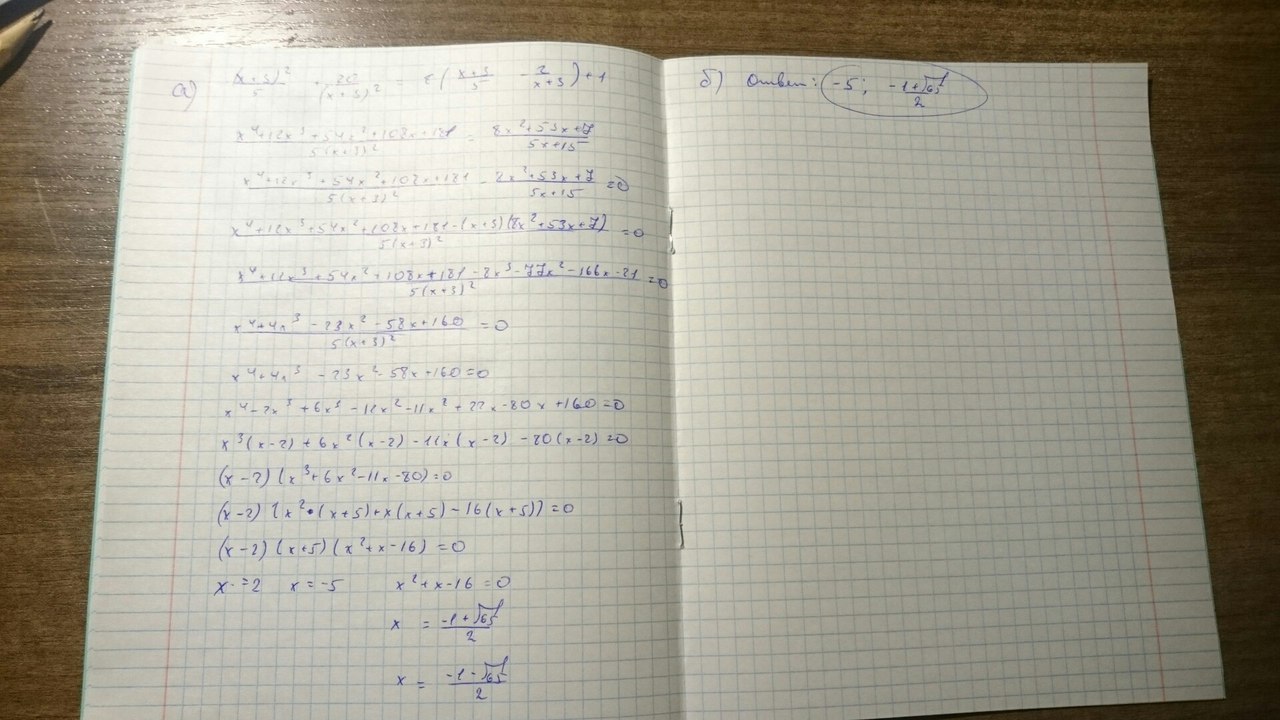 а) (x+3)²/5 + 20/(x+3)² = 8((x+3)/5 - 2/(x+3)) + 1
(x⁴+12x³+54x²+108x+181)/(5(x+3)²) = (8x²+53x+7)/(5x+15)
(x⁴+12x³+54x²+108x+181)/(5(x+3)²) - (8x²+53x+7)/(5x+15) = 0
(x⁴+12x³+54x²+108x+181-(x+3)(8x²+53x+7))/(5(x+3)²) = 0
(x⁴+12x³+54x²+108x+181-8x³-77x²-166x-21)/(5(x+3)²) = 0
(x⁴+4x³-23x²-58x+160)/(5(x+3)²) = 0
x⁴+4x³-23x²-58x+160=0
x⁴-2x³+6x³-12x²-11x²+22x-80x+160=0
x³(x-2)+6x²(x-2)-11x(x-2)-80(x-2)=0
(x-2)(x³+6x²-11x-80)=0
(x-2)(x²•(x+5)+x(x+5)-16(x+5))=0
(x-2)(x+5)(x²+x-16)=0
x=2 x=-5 x²+x-16=0
x = (-1+√65)/2
x = (-1-√65)/2
б) Ответ: -5; (-1+√65)/2